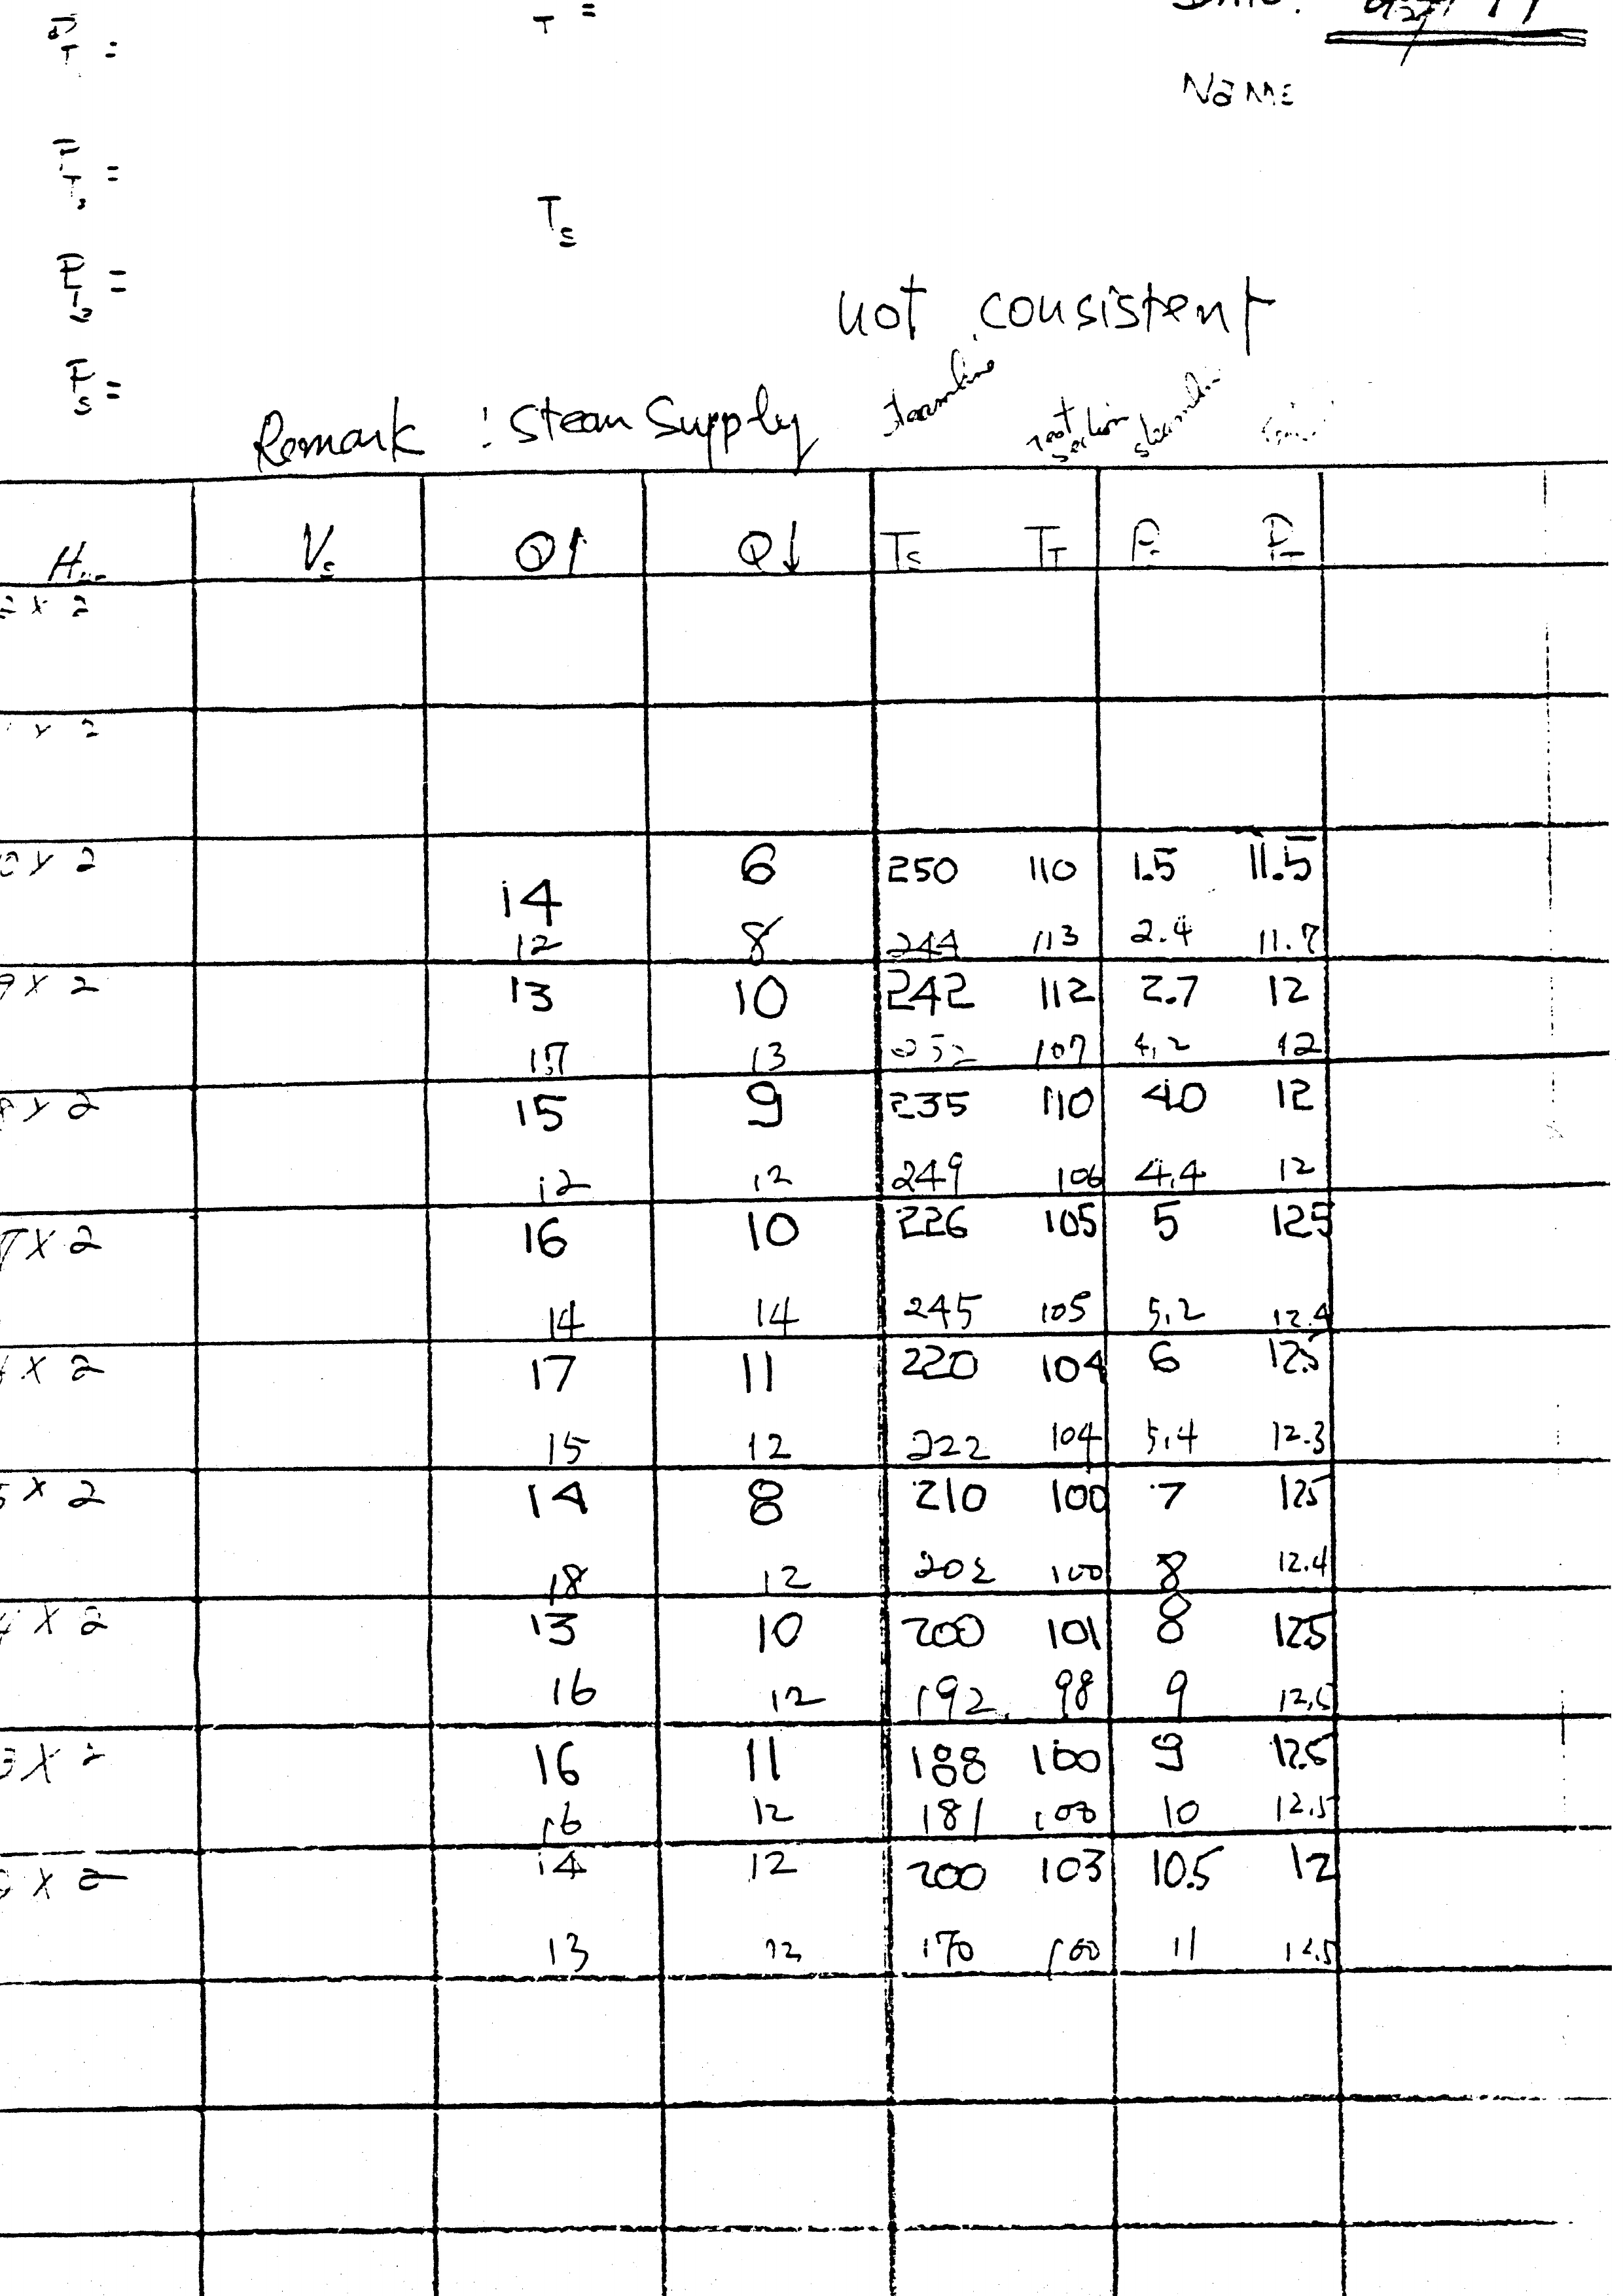 P T = T =
NaME
P T, =
T s
P T 2 =
not consistent
P s =
Remark : Steam Supply steamline test section steamline
V s Q↑ Q↓ T s T T P P T
2 x 2
x 2
x 2 14 6 250 110 1.5 11.5
12 8 244 113 2.4 11.7
9 x 2 13 10 242 112 2.7 12
17 13 252 107 4.2 12
8 x 2 15 9 235 110 4.0 12
12 12 249 106 4.4 12
7 x 2 16 10 226 105 5 125
14 14 245 105 5.2 12.4
x 2 17 11 220 104 6 12.5
15 12 222 104 5.4 12.3
5 x 2 14 8 210 100 7 125
18 12 202 100 8 12.4
4 x 2 13 10 200 101 8 125
16 12 192 98 9 12.5
3 x 2 16 11 188 100 9 12.5
16 12 181 100 10 12.5
x 2 14 12 200 103 10.5 12
13 12 170 100 11 12.5